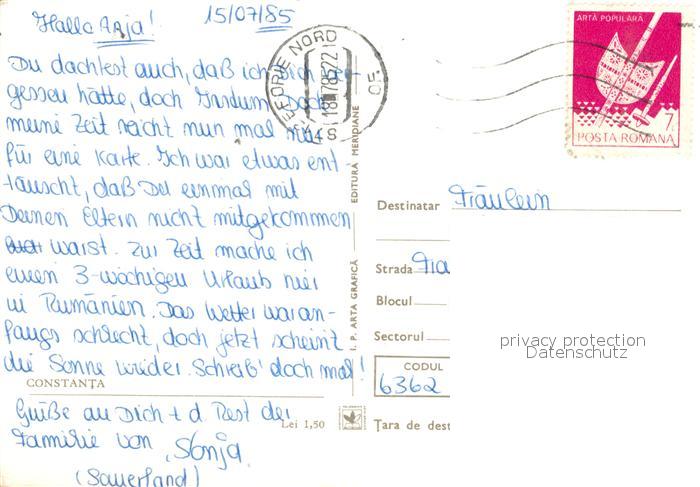 Hallo Anja!
15/07/85
Du dachtest auch, daß ich Dich ver-
gessen hätte, doch Irrdum, doch
meine Zeit reicht nun mal nur
für eine Karte. Ich war etwas ent-
täuscht, daß Du einmal mit
Deinen Eltern nicht mitgekommen
warst. Zur Zeit mache ich
einen 3-wöchigen Urlaub hier
in Rumänien. Das Wetter war an-
fangs schlecht, doch jetzt scheint
die Sonne wieder. Schreib' doch mal!
CONSTANŢA
Grüße an Dich + d. Rest der
Familie von Sonja
(Sauerland)
Lei 1,50
I. P. ARTA GRAFICĂ
EDITURA MERIDIANE
EFORIE NORD
ARTĂ POPULARĂ
7L
POSTA ROMANA
Destinatar Fräulein
Strada
Blocul
Sectorul
CODUL
6362
Ţara de dest
privacy protection
Datenschutz